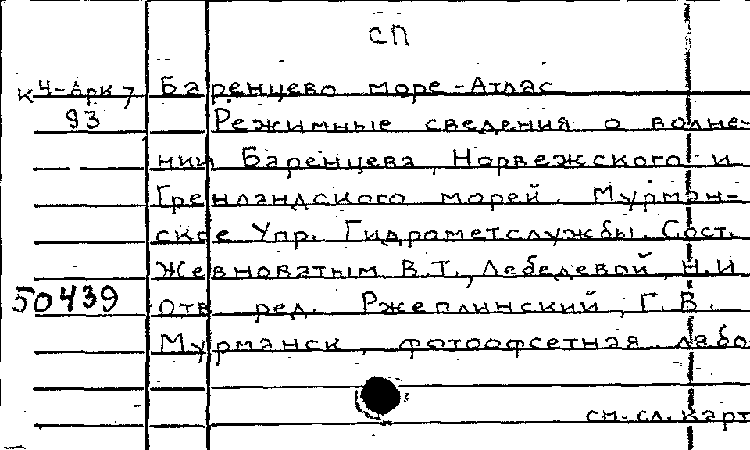 СП
К 4-Арк 7 Баренцево море - Атлас
93 Режимные сведения о волне-
нии Баренцева, Норвежского и
Гренландского морей. Мурман-
ское Упр. Гидрометслужбы. Сост.
Жевноватым В.Т., Лебедевой, Н.И.
50439 Отв ред. Ржеплинский, Г.В.
Мурманск, фотоофсетная лабо
см.сл.карт